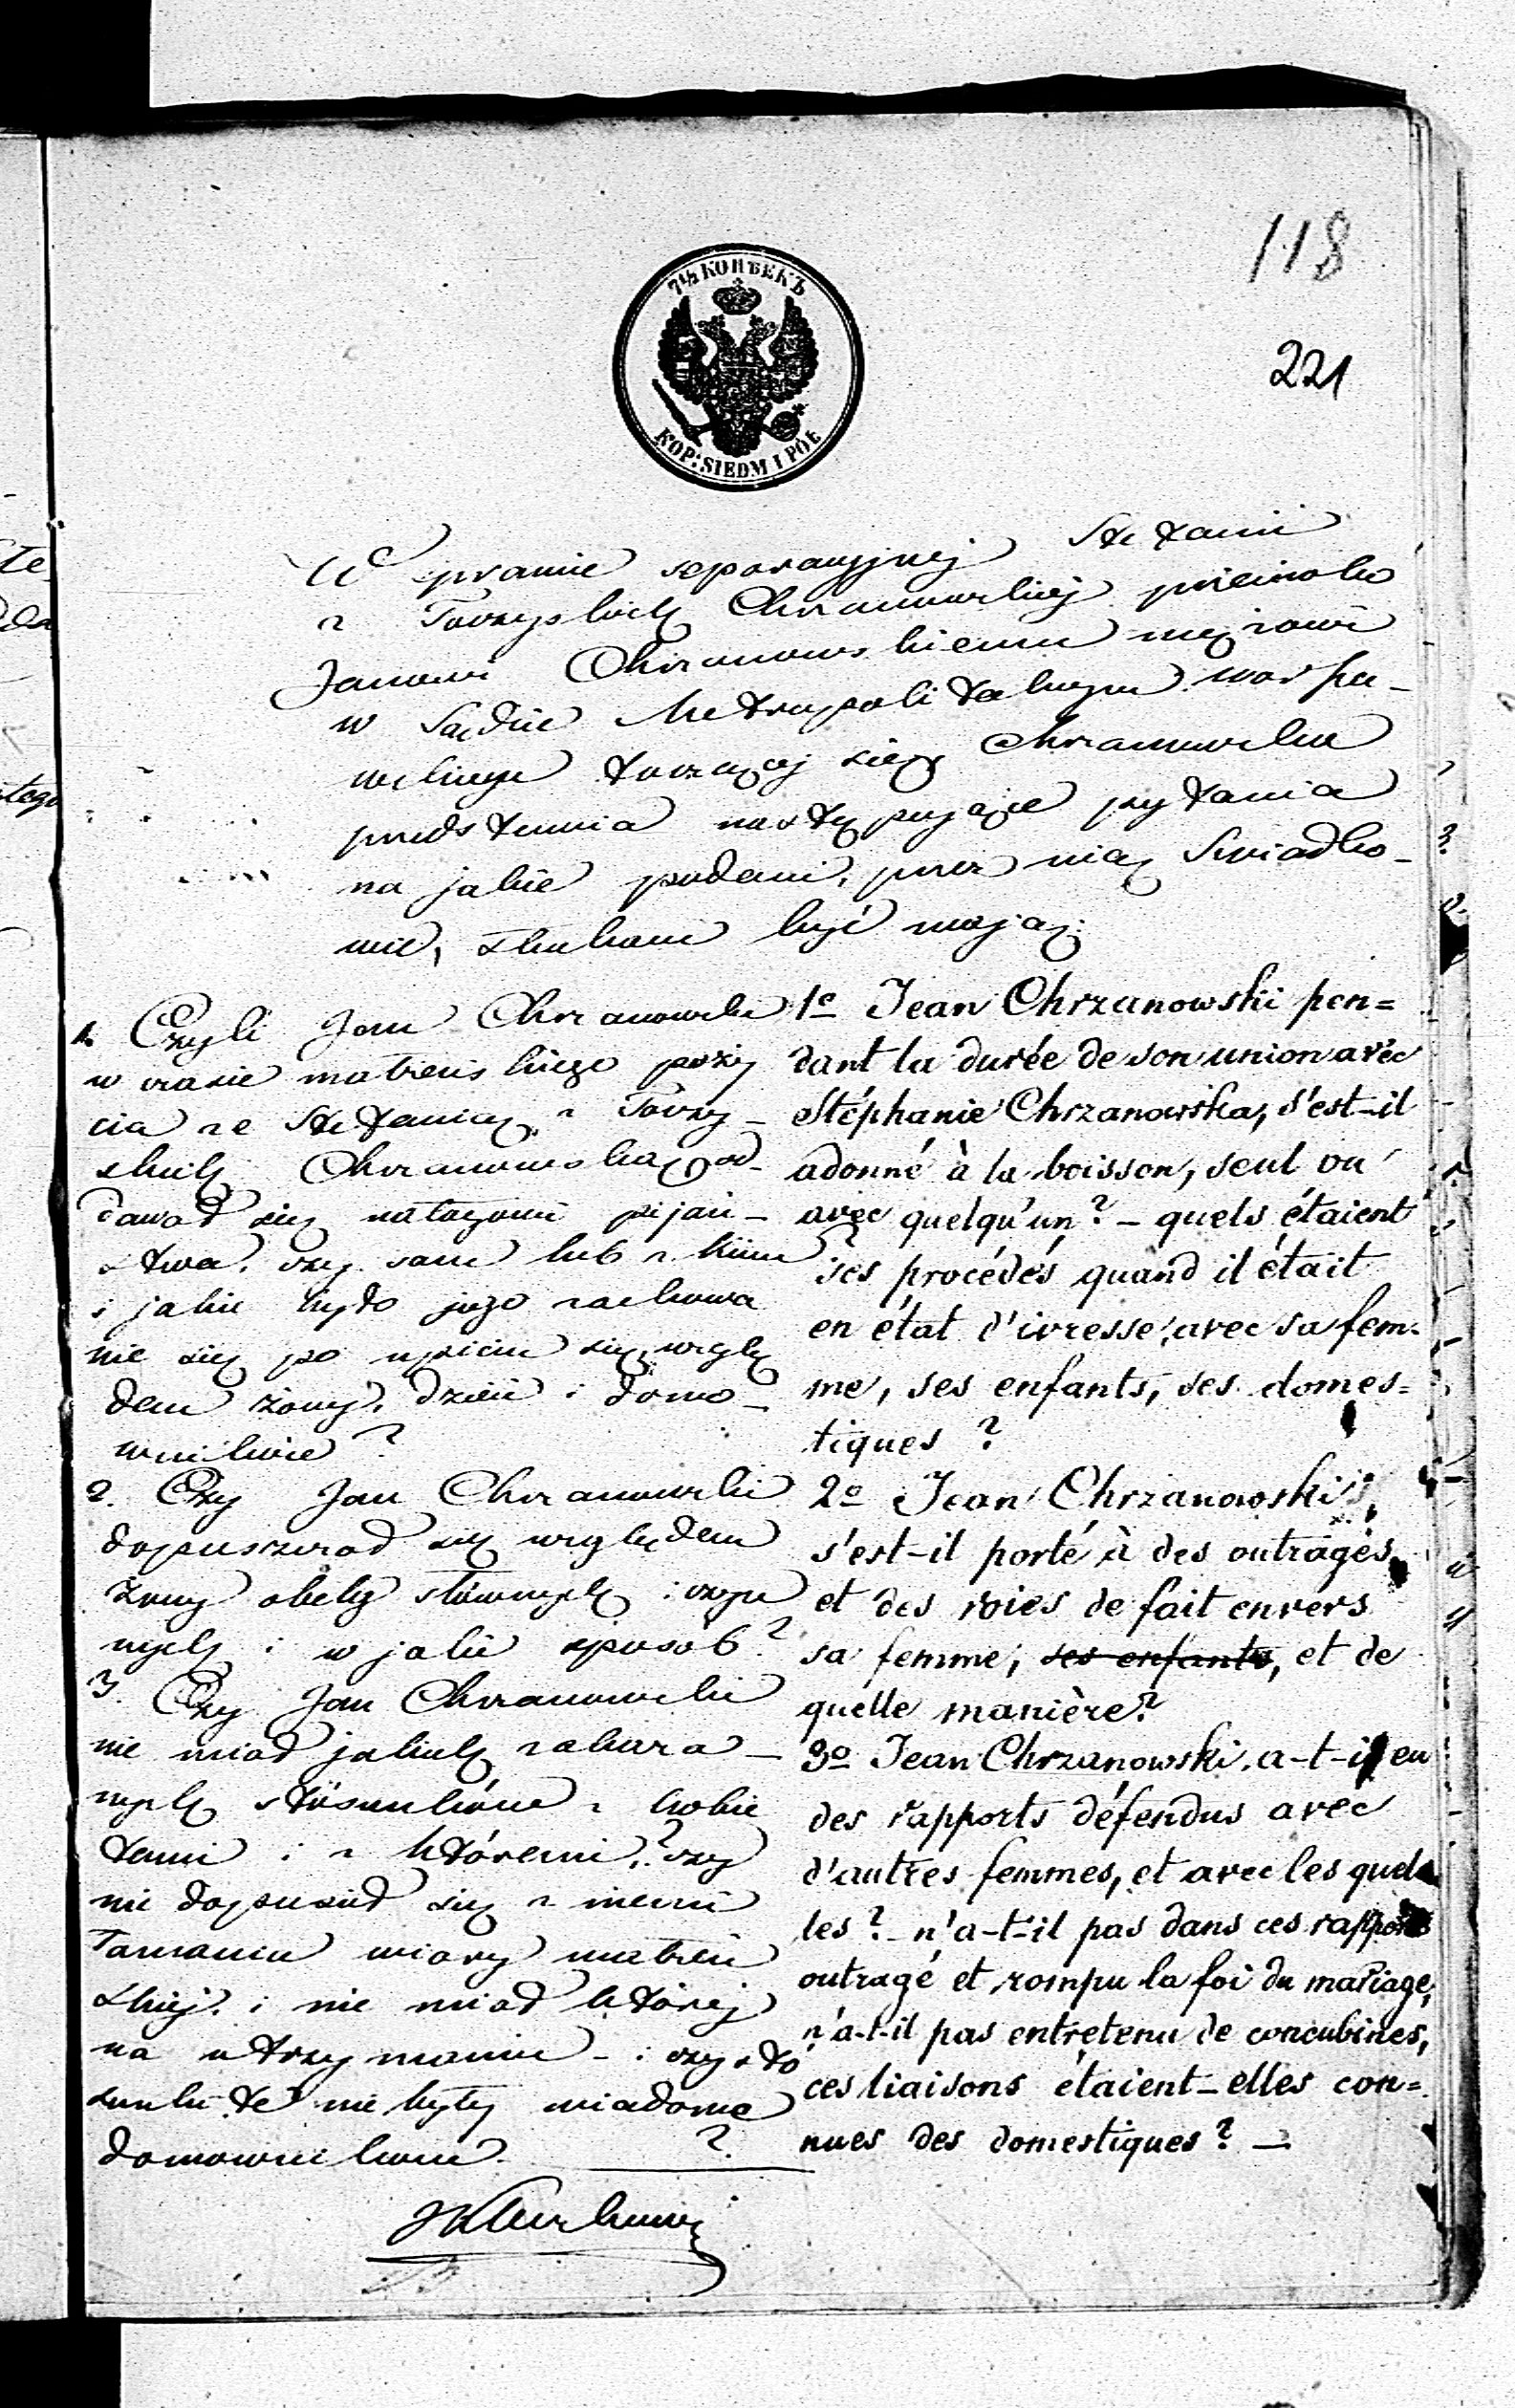 118
221
7½ КОПѢЕКЪ
KOP: SIEDM I PÓŁ
W sprawie separacyjnej Stefanii
z Chrzanowskiej przeciwko
Janowi Chrzanowskiemu mężowi
w Sądzie Metropolitalnym warsza-
wskiego toczącej się Chrzanowska
przedstawia następujące pytania
na jakie podani, przez nią Swiadko-
wie, słuchani być mają:
1. Czyli Jan Chrzanowski
w czasie małżeńskiego poży
cia ze Stefanią z
Chrzanowską od-
dawał się nałogowi pijań-
stwa, czy sam lub z kiem
i jakie było jego zachowa
nie się po upiciu się, wzglę
dem żony, dzieci i domo-
wników?
2. Czy Jan Chrzanowski
dopuszczał się względem
żony obelg słownych i czyn
nych i w jaki sposób?
3. Czy Jan Chrzanowski
nie miał jakich zakaza-
nych stósunków z kobie
tami i z któremi? czy
nie dopuścił się z niemi
łamania wiary małżeń
skiej, i nie miał której
na utrzymaniu - i czy stó
sunki te nie były wiadome
domownikom ?
1º Jean Chrzanowski pen=
dant la durée de son union avec
Stéphanie Chrzanowska, s'est-il
adonné à la boisson, seul ou
avec quelqu'un? - quels étaient
ses procédés quand il était
en état d'ivresse, avec sa fem=
me, ses enfants, ses domes=
tiques ?
2º Jean Chrzanowski,
s'est-il porté à des outrages
et des voies de fait envers
sa femme, ses enfants, et de
quelle manière?
3º Jean Chrzanowski, a-t-il eu
des rapports défendus avec
d'autres femmes, et avec les quel
les ? - n'a-t-il pas dans ces rapports
outragé et rompu la foi du mariage,
n'a-t-il pas entretenu de concubines,
ces liaisons étaient-elles con=
nues des domestiques ? -